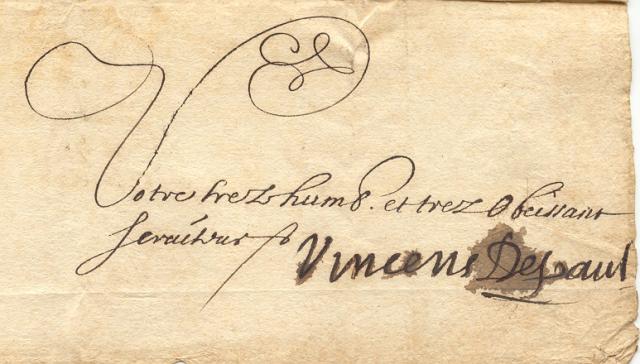 Votre trez humb. et trez Obeissant
seruiteur
Vincens Depaul